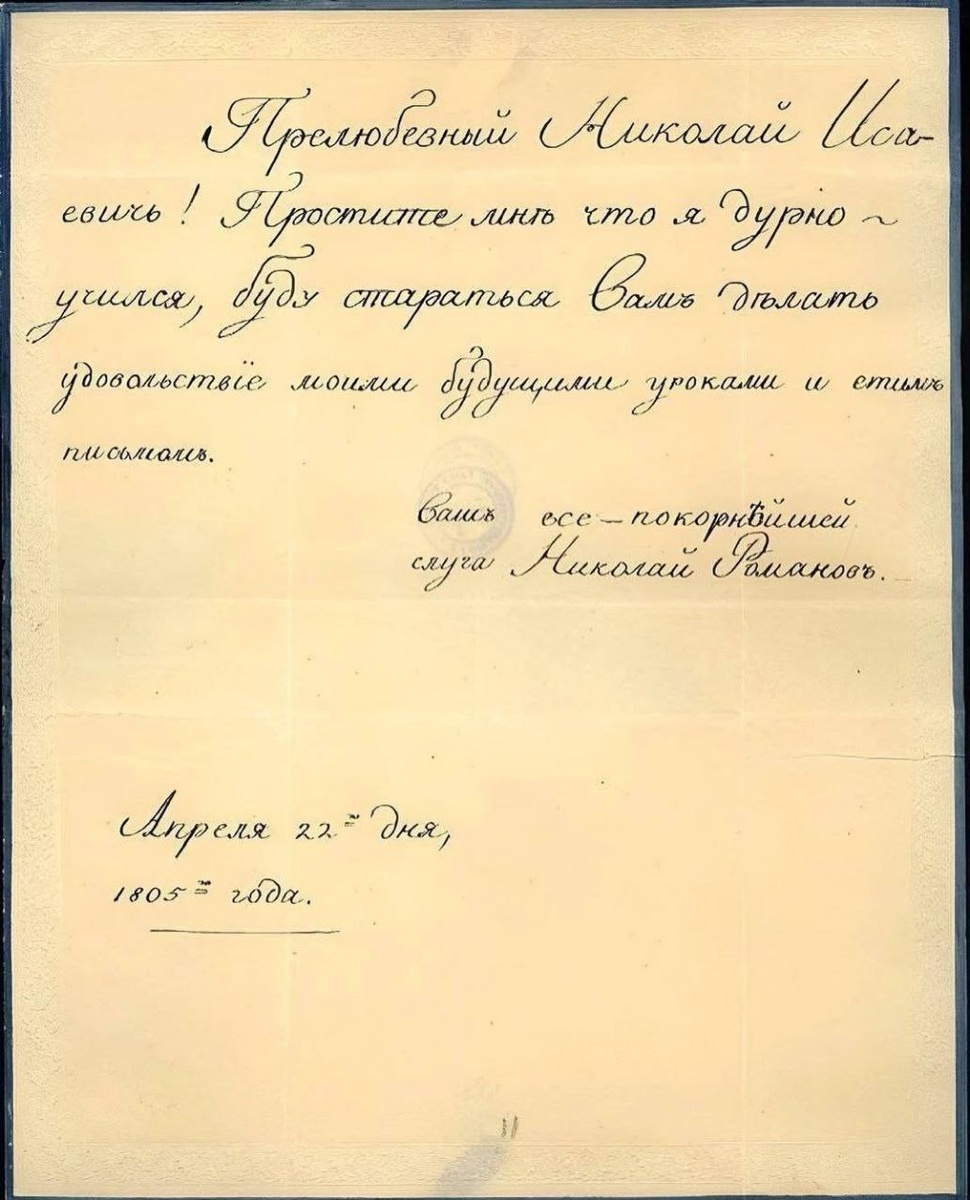 Прелюбезный Николай Иса-
евичь! Простите мнѣ что я дурно ~
учился, буду стараться Вамъ дѣлать
удовольствїе моими будущими уроками и етимъ
письмомъ.
Вашъ все-покорнѣйшей
слуга Николай Романовъ.
Апреля 22го дня,
1805го года.